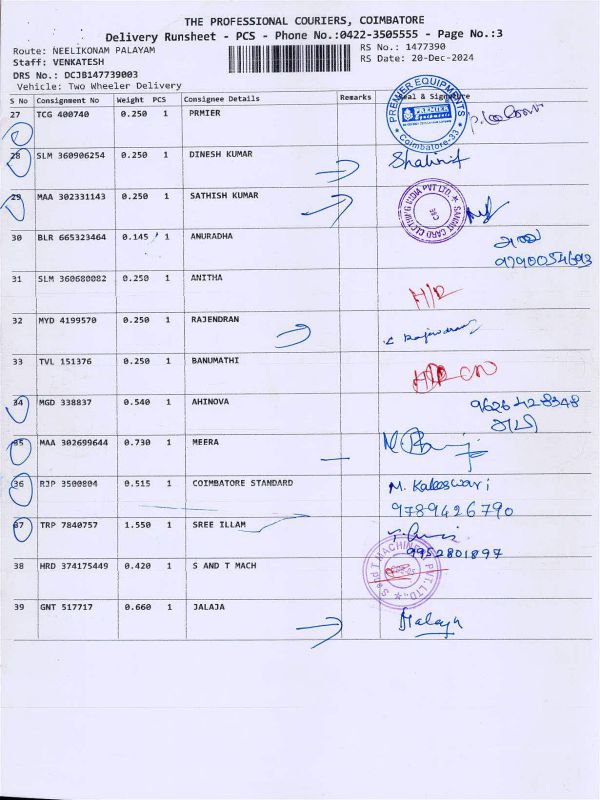 THE PROFESSIONAL COURIERS, COIMBATORE
Delivery Runsheet - PCS - Phone No.:0422-3505555 - Page No.:3
Route: NEELIKONAM PALAYAM RS No.: 1477390
Staff: VENKATESH RS Date: 20-Dec-2024
DRS No.: DCJB147739003
Vehicle: Two Wheeler Delivery
S No Consignment No Weight PCS Consignee Details Remarks Seal & Signature
27 TCG 400740 0.250 1 PRMIER
PREMIER EQUIPMENTS
PREMIER
Coimbatore-33
28 SLM 360906254 0.250 1 DINESH KUMAR
29 MAA 302331143 0.250 1 SATHISH KUMAR
30 BLR 665323464 0.145 1 ANURADHA
31 SLM 360680082 0.250 1 ANITHA
32 MYD 4199570 0.250 1 RAJENDRAN
33 TVL 151376 0.250 1 BANUMATHI
34 MGD 338837 0.540 1 AHINOVA 9626428348
35 MAA 302699644 0.730 1 MEERA
36 RJP 3500804 0.515 1 COIMBATORE STANDARD M. Kaleeswari
9789426790
37 TRP 7840757 1.550 1 SREE ILLAM
9952801897
38 HRD 374175449 0.420 1 S AND T MACH
39 GNT 517717 0.660 1 JALAJA